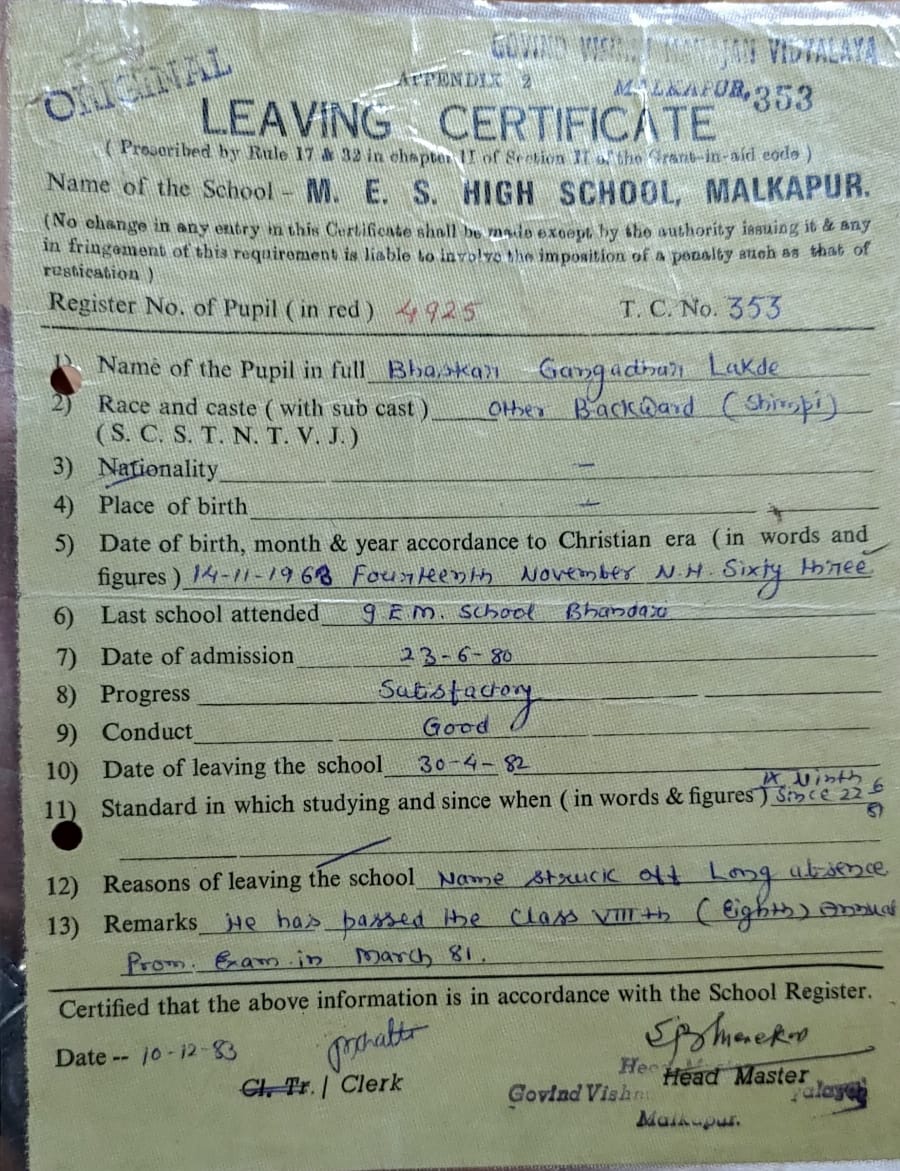 ORIGINAL
GOVIND VISHNU MAHAJAN VIDYALAYA
APPENDIX 2
MALKAPUR. 353
LEAVING CERTIFICATE
( Prescribed by Rule 17 & 32 in chapter II of Section II of the Grant-in-aid code )
Name of the School - M. E. S. HIGH SCHOOL, MALKAPUR.
(No change in any entry in this Certificate shall be made except by the authority issuing it & any
in fringement of this requirement is liable to involve the imposition of a penalty such as that of
rustication )
Register No. of Pupil ( in red ) 4925 T. C. No. 353
1) Name of the Pupil in full Bhaskar Gangadhar Lakde
2) Race and caste ( with sub cast ) Other Backward (Shimpi)
( S. C. S. T. N. T. V. J. )
3) Nationality —
4) Place of birth —
5) Date of birth, month & year accordance to Christian era ( in words and
figures ) 14-11-1963 Fourteenth November N.H. Sixty three
6) Last school attended g.E.M. School Bhandara
7) Date of admission 23-6-80
8) Progress Satisfactory
9) Conduct Good
10) Date of leaving the school 30-4-82
IX Ninth
11) Standard in which studying and since when ( in words & figures ) Since 22 6
81
12) Reasons of leaving the school Name struck off Long absence
13) Remarks He has passed the Class VIIIth (Eighth) Annual
Prom. Exam in March 81.
Certified that the above information is in accordance with the School Register.
Date -- 10-12-83
Cl. Tr. / Clerk
Head Master
Govind Vishnu
Malkapur.